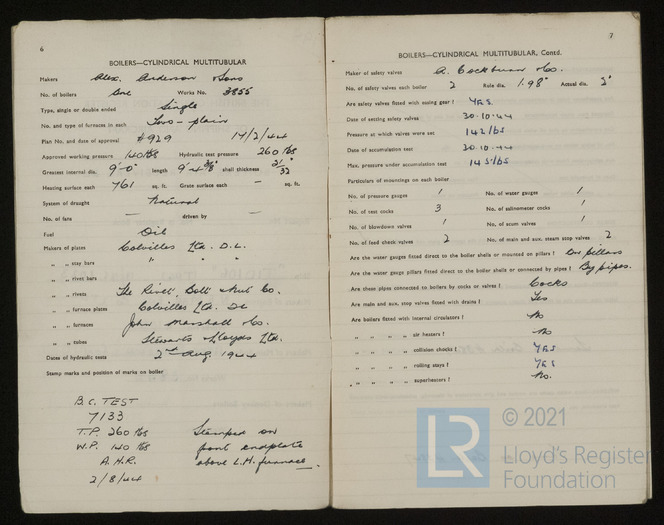 6
BOILERS—CYLINDRICAL MULTITUBULAR
Makers Alex. Anderson & Sons
No. of boilers One Works No. 3855
Type, single or double ended Single
No. and type of furnaces in each Two - plain
Plan No. and date of approval #929 17/2/44
Approved working pressure 140 lbs Hydraulic test pressure 260 lbs
Greatest internal dia. 9'-0" length 9'-4 3/8" shell thickness 21/32"
Heating surface each 761 sq. ft. Grate surface each — sq. ft.
System of draught Natural
No. of fans — driven by —
Fuel Oil
Makers of plates Colvilles Ltd. D.L.
" " stay bars " " "
" " rivet bars
" " rivets The Rivet, Bolt & Nut Co.
" " furnace plates Colvilles Ltd.
" " furnaces John Marshall & Co.
" " tubes Stewarts & Lloyds Ltd.
Dates of hydraulic tests 2nd Aug 1944
Stamp marks and position of marks on boiler
B.C. TEST
7133
T.P. 260 lbs Stamped on
W.P. 140 lbs front endplate
A.H.R. above L.H. furnace.
2/8/44
7
BOILERS—CYLINDRICAL MULTITUBULAR, Contd.
Maker of safety valves A. Cockburn & Co.
No. of safety valves each boiler 2 Rule dia. 1.98" Actual dia. 2"
Are safety valves fitted with easing gear? YES
Date of setting safety valves 30-10-44
Pressure at which valves were set 142 lbs
Date of accumulation test 30-10-44
Max. pressure under accumulation test 145 lbs
Particulars of mountings on each boiler
No. of pressure gauges 1 No. of water gauges 1
No. of test cocks 3 No. of salinometer cocks 1
No. of blowdown valves 1 No. of scum valves 1
No. of feed check valves 2 No. of main and aux. steam stop valves 2
Are the water gauges fitted direct to the boiler shells or mounted on pillars? On pillars
Are the water gauge pillars fitted direct to the boiler shells or connected by pipes? By pipes.
Are these pipes connected to boilers by cocks or valves? Cocks
Are main and aux. stop valves fitted with drains? Yes
Are boilers fitted with internal circulators? No
" " " " air heaters? No
" " " " collision chocks? YES
" " " " rolling stays? YES
" " " " superheaters? No.
LR
© 2021
Lloyd's Register
Foundation